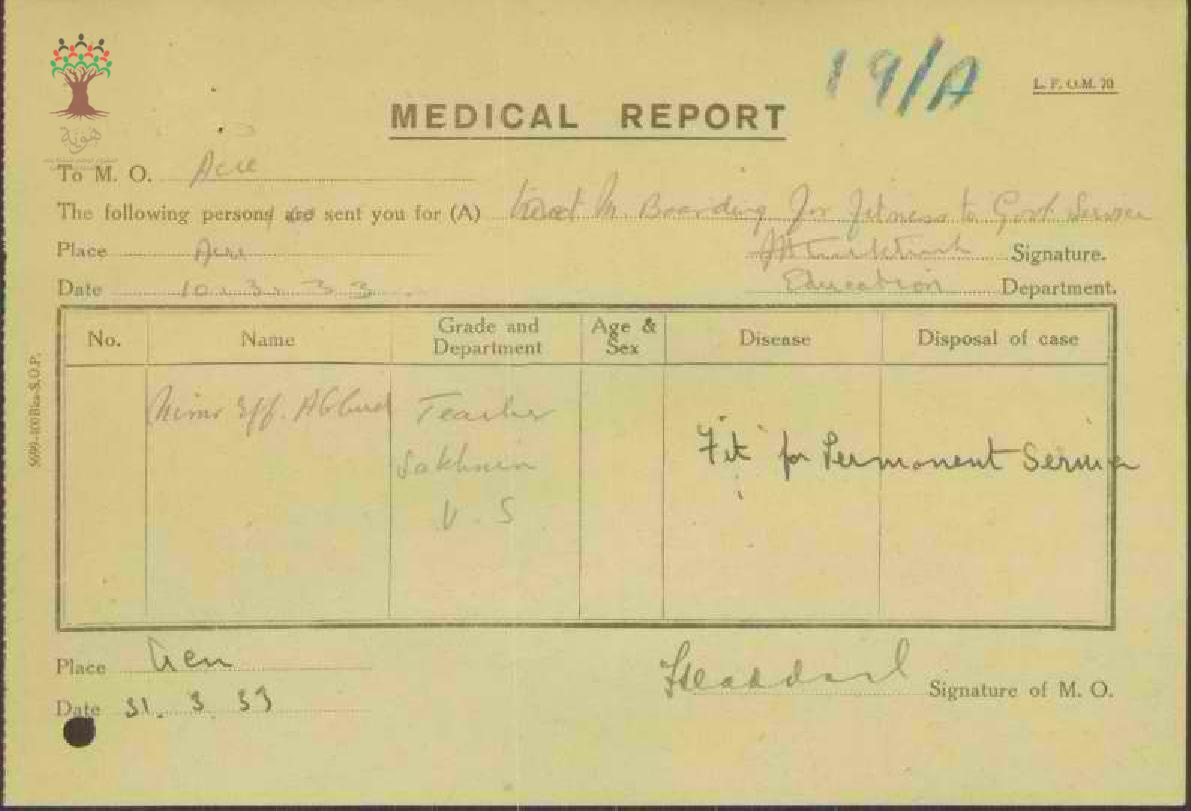 19/A
L. F. O.M. 70
هوية
MEDICAL REPORT
To M. O. Acre
The following person is sent you for (A) M. Boarding for fitness to Govt Service
Place Acre Signature.
Date 10. 3. 33 Education Department.
No. Name Grade and Department Age & Sex Disease Disposal of case
Nimr Eff. Abbud Teacher
Sakhnin
V. S
Fit for Permonent Service
Place Acre
Signature of M. O.
Date 31. 3. 33